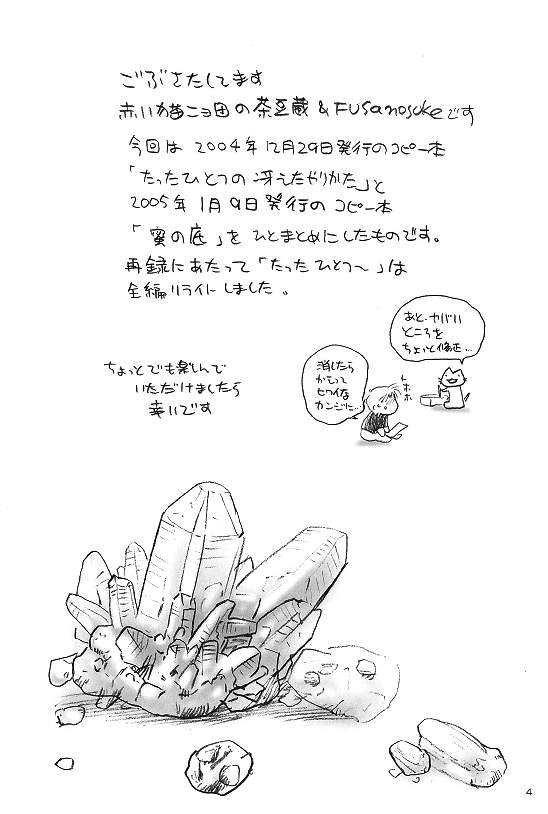 ごぶさたしてます
赤い猫ニョ団の茶豆蔵 & FUSanosukeです
今回は 2004年12月29日発行のコピー本
「たったひとつの冴えたやりかた」と
2005年 1月9日発行の コピー本
「蜜の底」を ひとまとめにしたものです。
再録にあたって「たったひとつ～」は
全編リライトしました。
あと、ヤバい
ところを
ちょっと修正…
消したら
かえって
ヒワイな
カンジに…
ちょっとでも楽しんで
いただけましたら
幸いです
4